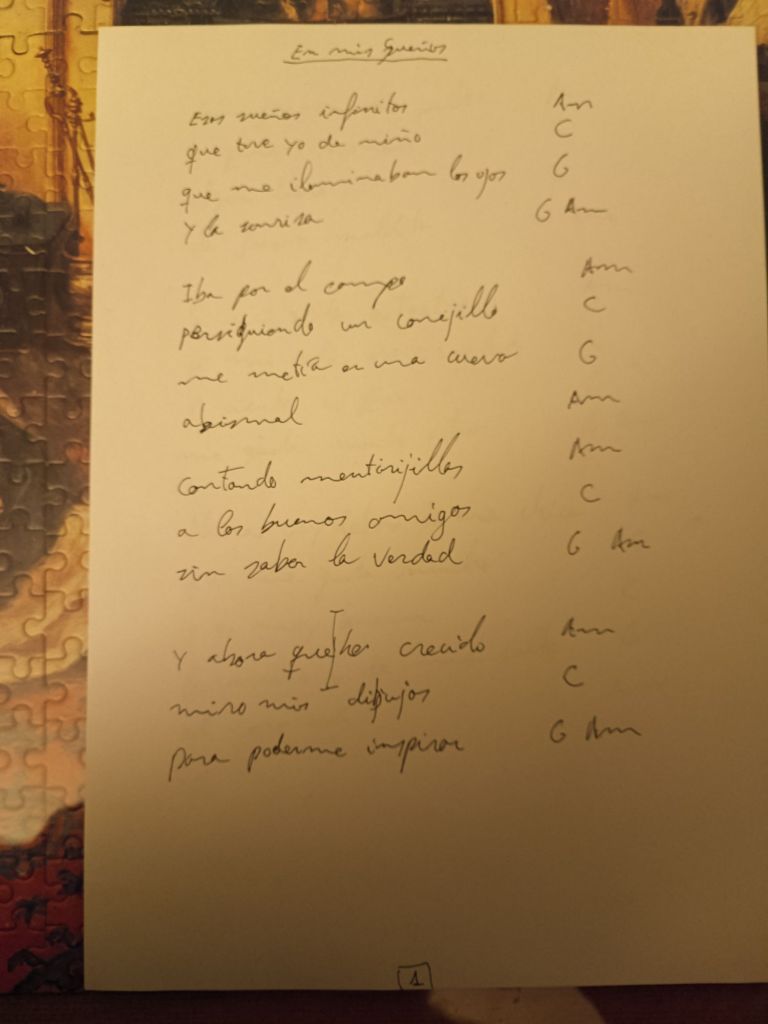 En mis Sueños
Esos sueños infinitos Am
que tuve yo de niño C
que me iluminaban los ojos G
Y la sonrisa G Am
Iba por el campo Am
persiguiendo un conejillo C
me metía en una cueva G
abismal Am
Contando mentirijillas Am
a los buenos amigos C
sin saber la verdad G Am
Y ahora que he crecido Am
miro mis dibujos C
para poderme inspirar G Am
1